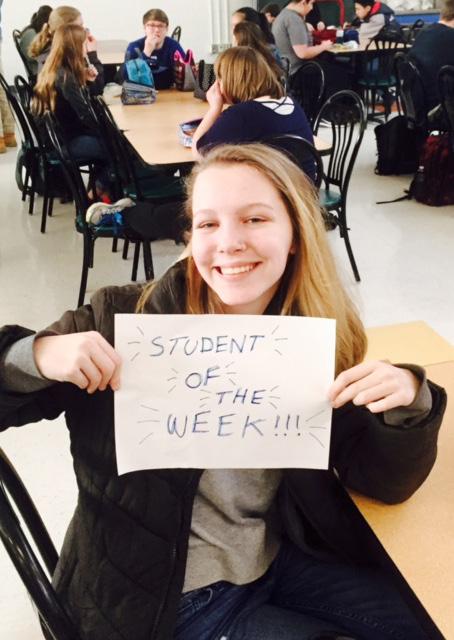 STUDENT
OF
THE
WEEK!!!